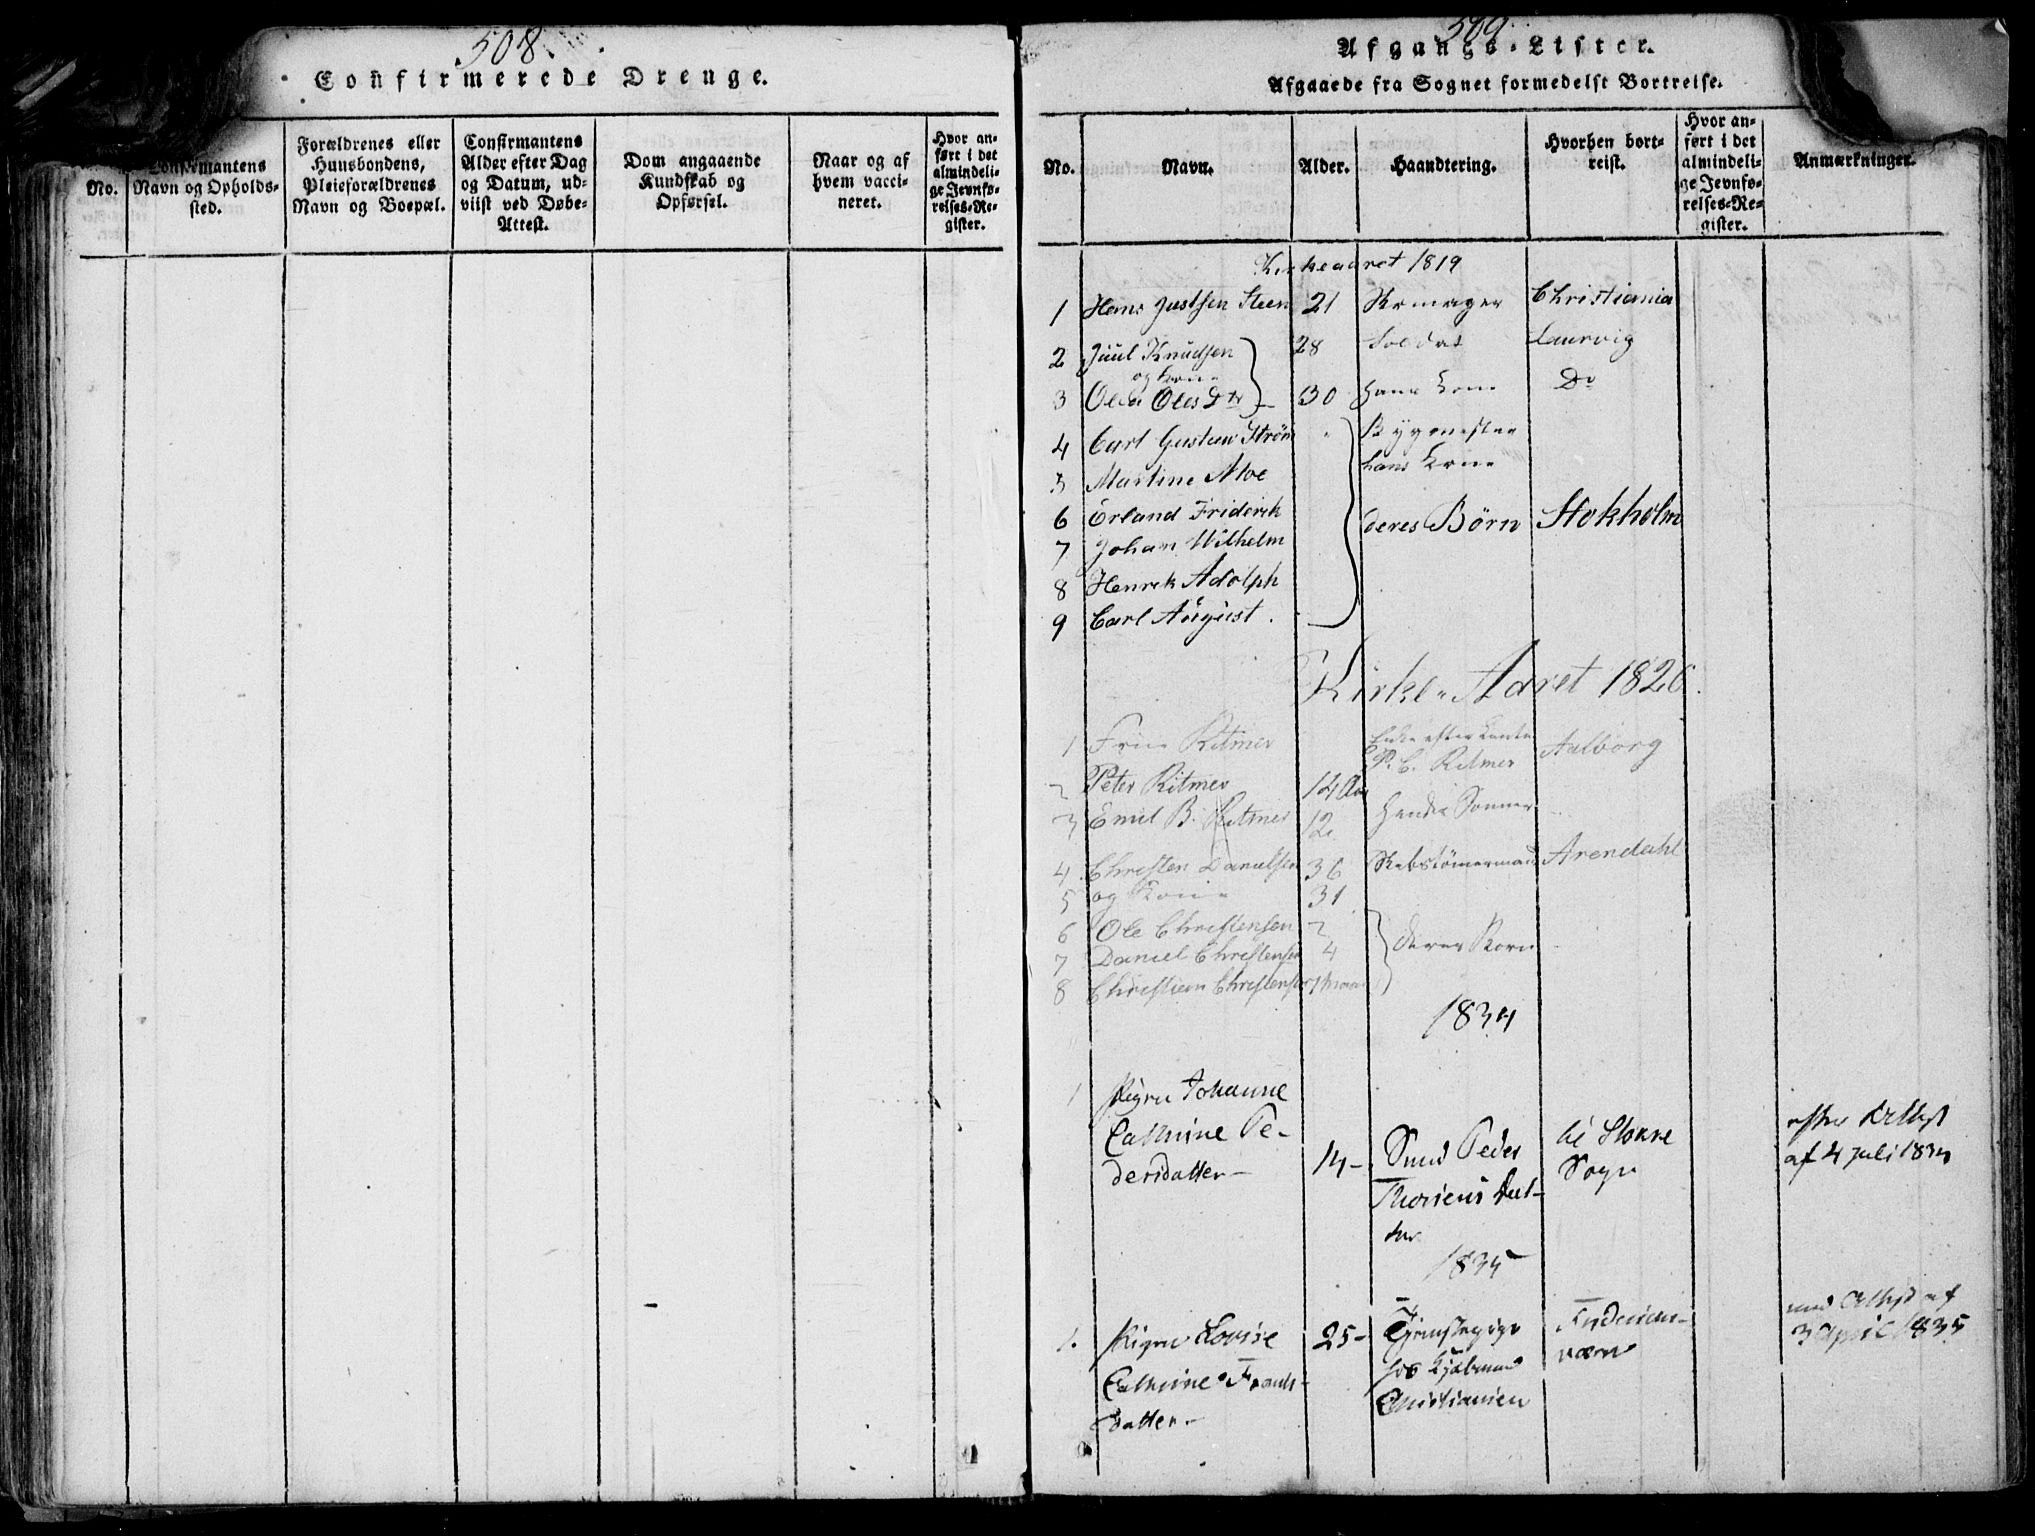 508.
Confirmerede Drenge.
No.
Confirmantens
Navn og Opholds-
sted.
Forældrenes eller
Huusbondens,
Pleieforældrenes
Navn og Boepæl.
Confirmantens
Alder efter Dag
og Datum, ud-
viist ved Døbe-
Attest.
Dom angaaende
Kundskab og
Opførsel.
Naar og af
hvem vacci-
neret.
Hvor an-
ført i det
almindeli-
ge Jevnfø-
relses-Re-
gister.
509.
Afgangs-Lister.
Afgaaede fra Sognet formedelst Bortreise.
No.
Navn.
Alder.
Haandtering.
Hvorhen bort-
reist.
Hvor an-
ført i det
almindeli-
ge Jevnfø-
relses-Re-
gister.
Anmærkninger.
Kirkeaaret 1819
1 Hans Justsen Steen 21 Skomager Christiania
2 Juul Knudsen 28 Soldat Laurvig
og Kone
3 Olea Olesdtr 30 hans Kone Do
4 Carl Gustav Strøm
hans Kone
5 Martine Moe
6 Erland Friderik deres Børn Stokholm
7 Johan Wilhelm
8 Henrik Adolph
9 Carl August.
Kirke-Aaret 1820.
1 Ritmer Enke efter Aalborg
P. C. Ritmer
2 Peter Ritmer 14 Aar
3 Emil B. Ritmer 12 hendes Sønner
4 Christen Danielsen 36 Skibstømermand Arendahl
5 og Kone 31
6 Ole Christensen 7
7 Daniel Christensen 4 deres Børn
8 Christian Christensen
1834
1 Pigen Johanne
Cathrine Pe-
dersdatter- 14- Smed Peder
Thorsens Dat-
ter
til Stokke
Sogn
efter Attest
af 4 Juli 1834
1835
1. Pigen Lovise 25- Tjenstepige
Cathrine Frants-
datter-
hos Kjøbmand
Christiansen
Fridericks-
værn
med Attest af
3 April 1835